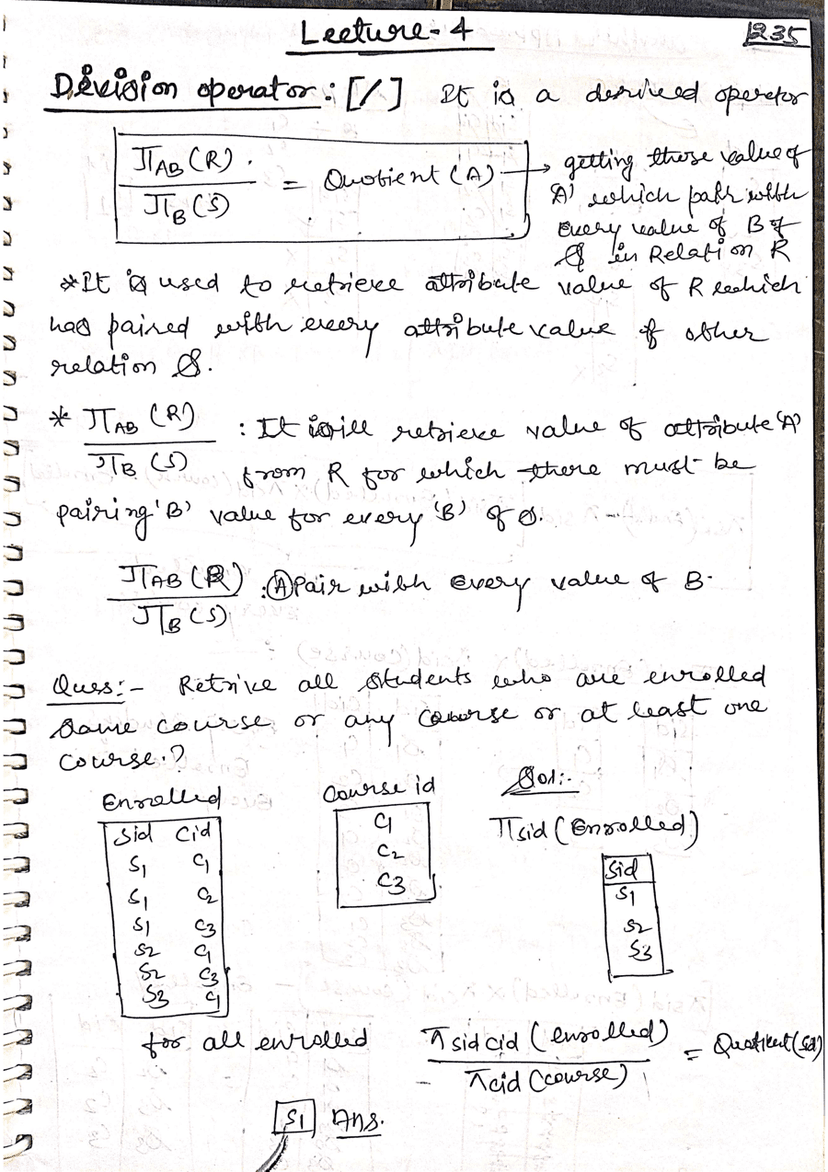 Lecture-4
235
Division operator: [/] It is a derived operator
π_AB (R) / π_B (S) = Quotient (A) → getting those value of
'A' which pair with
every value of B of
S in Relation R
*It is used to retrieve attribute value of R which
has paired with every attribute value of other
relation S.
* π_AB (R) / π_B (S) : It will retrieve value of attribute 'A'
from R for which there must be
pairing 'B' value for every 'B' of S.
π_AB (R) / π_B (S) : (A) Pair with every value of B.
Ques:- Retrive all students who are enrolled
some course or any course or at least one
course.?
Enrolled
Sid Cid
S1 C1
S1 C2
S1 C3
S2 C1
S2 C3
S3 C1
Course id
C1
C2
C3
Sol:-
π sid (Enrolled)
Sid
S1
S2
S3
for all enrolled
π sid cid (enrolled) / π cid (course) = Quotient (sid)
S1 Ans.